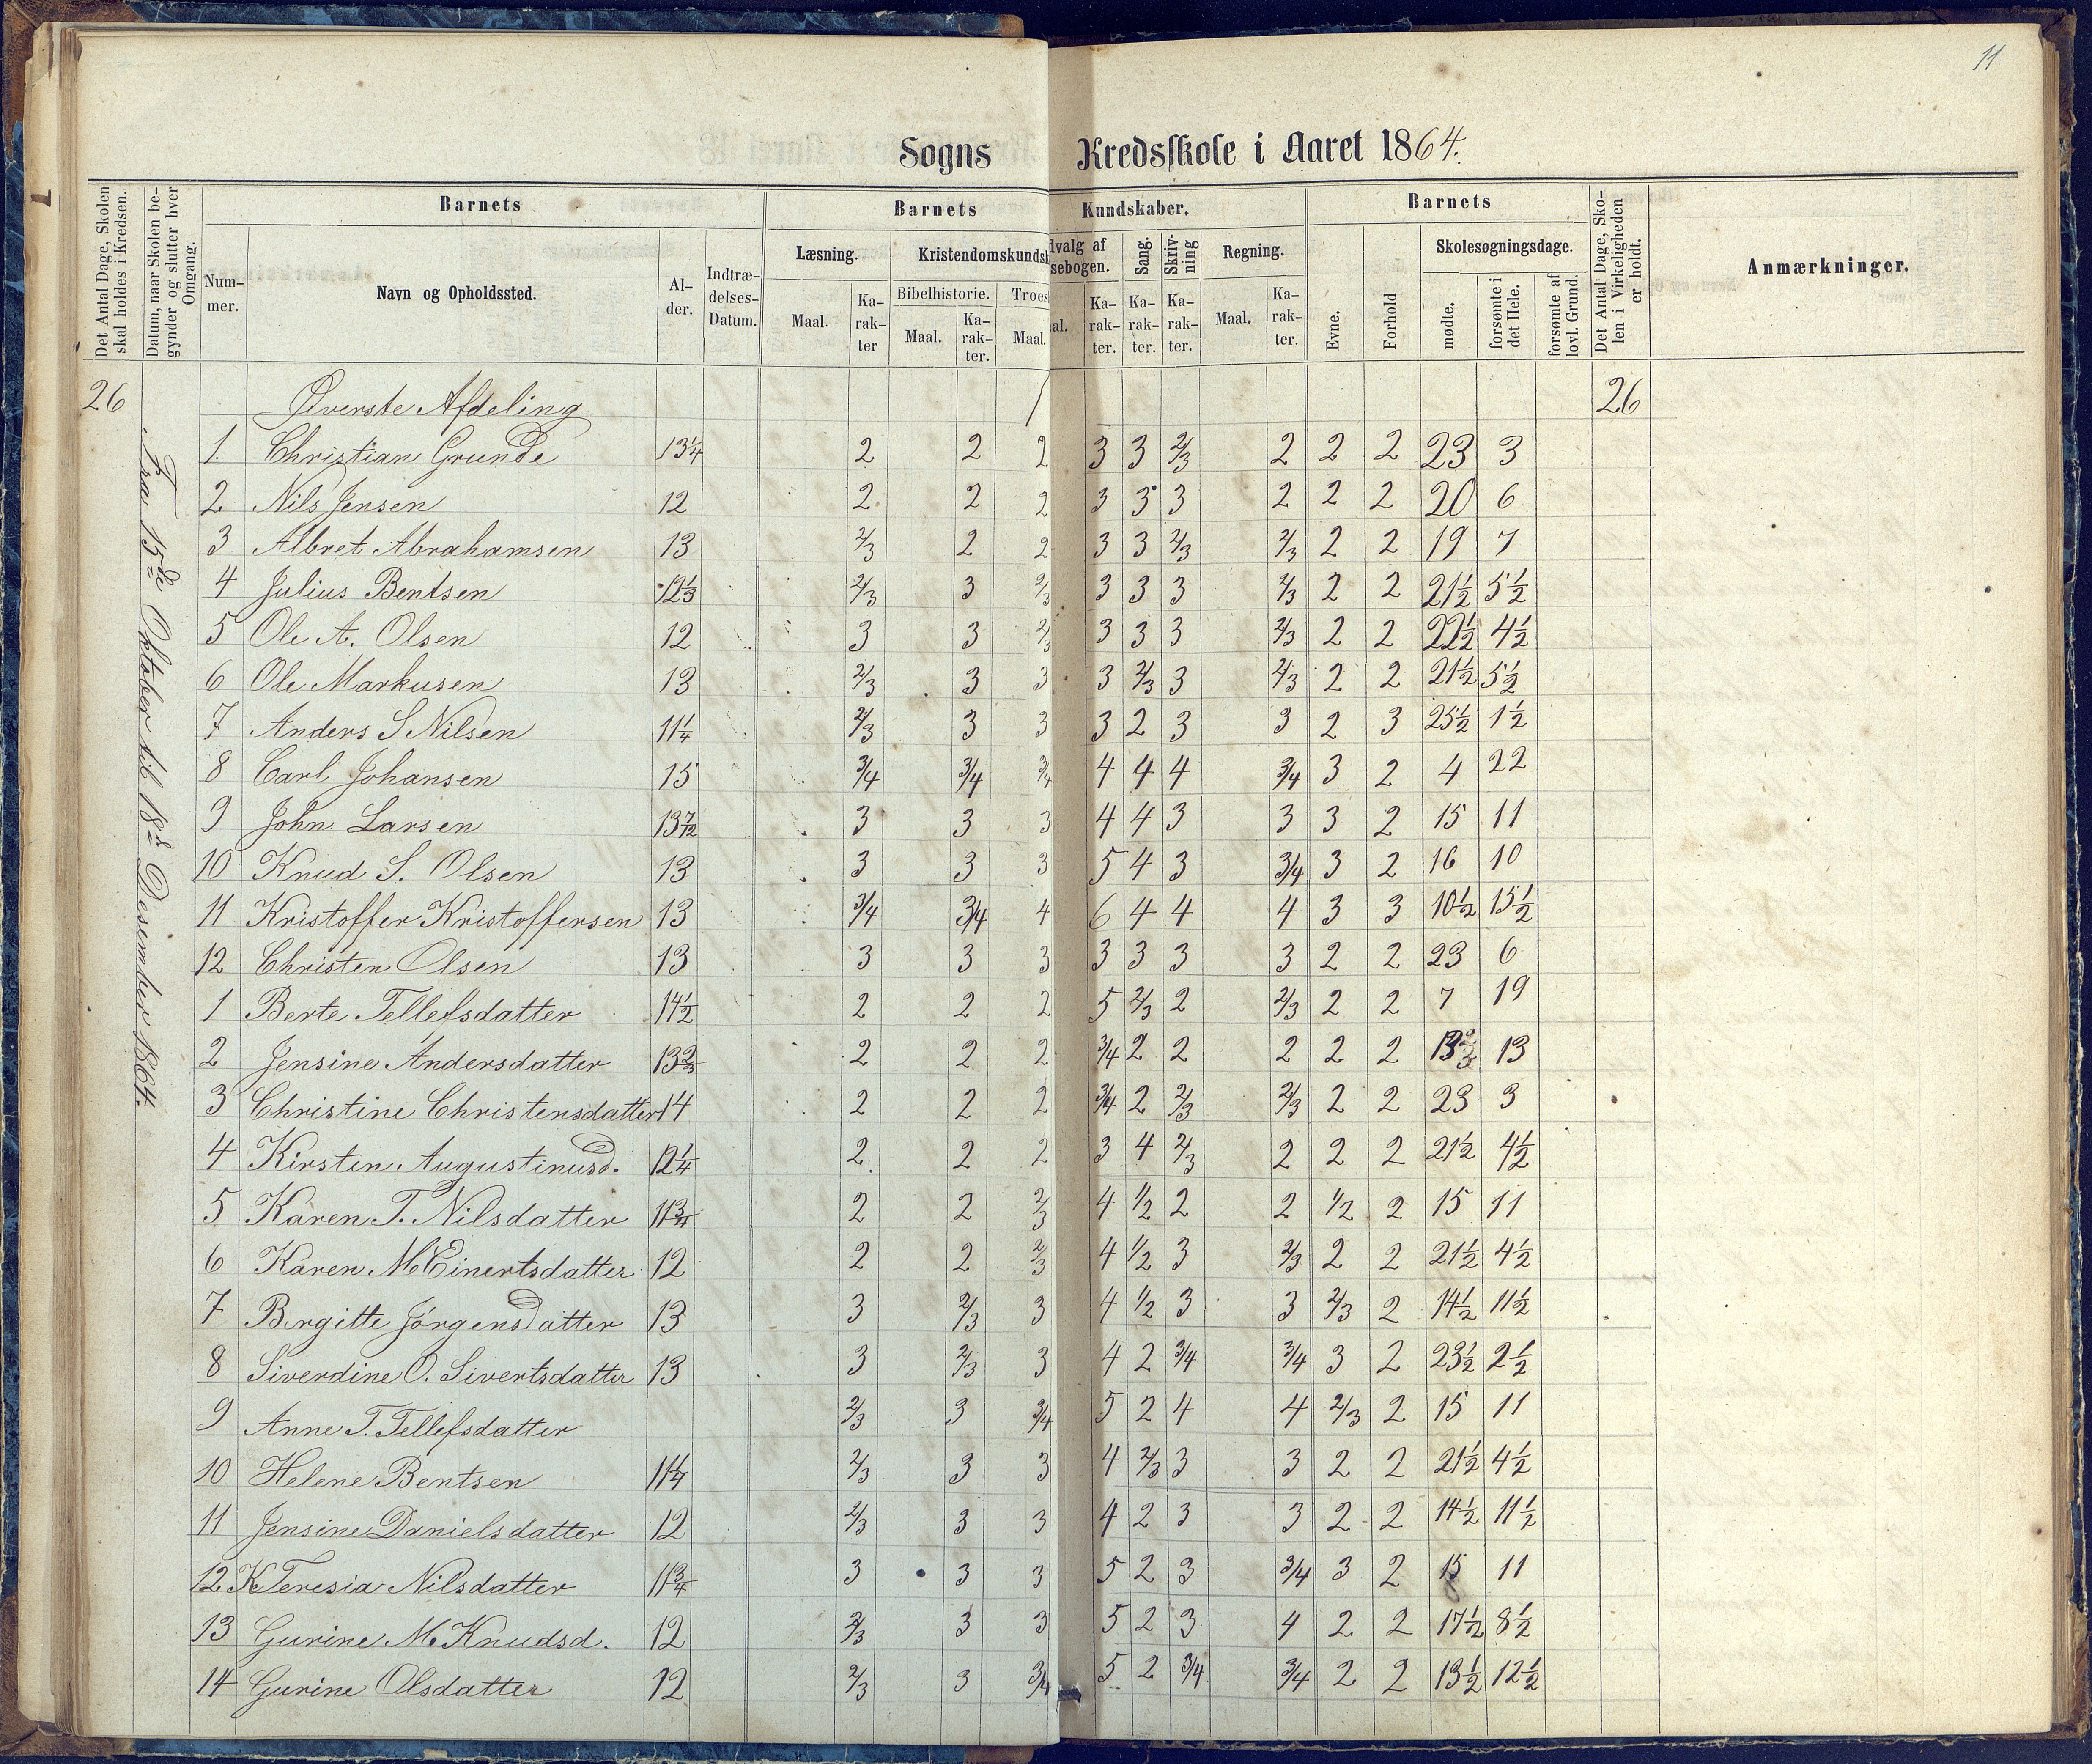 11
Sogns Kredsskole i Aaret 1864.
Det Antal Dage, Skolen skal holdes i Kredsen.
Datum, naar Skolen begynder og slutter hver Omgang.
Barnets
Nummer.
Navn og Opholdssted.
Alder.
Indtrædelses-Datum.
Barnets Kundskaber.
Læsning.
Maal.
Karakter
Kristendomskundsk
Bibelhistorie.
Maal.
Karakter.
Troes
Maal.
dvalg af
sebogen.
al.
Karakter.
Sang.
Karakter.
Skrivning
Karakter.
Regning.
Maal.
Karakter.
Barnets
Evne.
Forhold
Skolesøgningsdage.
mødte.
forsømte i det Hele.
forsømte af lovl. Grund.
Det Antal Dage, Skolen i Virkeligheden er holdt.
Anmærkninger.
26 Øverste Afdeling 26
Fra 15de Oktober til 18de Desember 1864.
1. Christian Grunde 13 1/4 2 2 2 3 3 2/3 2 2 2 23 3
2 Nils Jensen 12 2 2 2 3 3 3 2 2 2 20 6
3 Albret Abrahamsen 13 2/3 2 2 3 3 2/3 2/3 2 2 19 7
4 Julius Bentsen 12 1/3 2/3 3 2/3 3 3 3 2/3 2 2 21 1/2 5 1/2
5 Ole A. Olsen 12 3 3 2/3 3 3 3 2/3 2 2 22 1/2 4 1/2
6 Ole Markusen 13 2/3 3 3 3 2/3 3 2/3 2 2 21 1/2 5 1/2
7 Anders S Nilsen 11 1/4 2/3 3 3 3 2 3 3 2 3 25 1/2 1 1/2
8 Carl Johansen 15 3/4 3/4 3/4 4 4 4 3/4 3 2 4 22
9 John Larsen 13 7/12 3 3 3 4 4 3 3 3 2 15 11
10 Knud S. Olsen 13 3 3 3 5 4 3 3/4 3 2 16 10
11 Kristoffer Kristoffersen 13 3/4 3/4 4 6 4 4 4 3 3 10 1/2 15 1/2
12 Christen Olsen 13 3 3 3 3 3 3 3 2 2 23 6
1 Berte Tellefsdatter 14 1/2 2 2 2 5 2/3 2 2/3 2 2 7 19
2 Jensine Andersdatter 13 2/3 2 2 2 3/4 2 2 2 2 2 13
3 Christine Christensdatter 14 2 2 2 3/4 2 2/3 2/3 2 2 23 3
4 Kirsten Augustinusd. 12 1/4 2 2 2 3 4 2/3 2 2 2 21 1/2 4 1/2
5 Karen T. Nilsdatter 11 3/4 2 2 2/3 4 1/2 2 2 1/2 2 15 11
6 Karen M Einertsdatter 12 2 2 2/3 4 1/2 3 2/3 2 2 21 1/2 4 1/2
7 Birgitte Jörgensdatter 13 3 2/3 3 4 1/2 3 3 2/3 2 14 1/2 11 1/2
8 Siverdine O. Sivertsdatter 13 3 2/3 3 4 2 3/4 3/4 3 2 23 1/2 2 1/2
9 Anne T. Tellefsdatter 2/3 3 3/4 5 2 4 4 2/3 2 15 11
10 Helene Bentsen 11 1/4 2/3 3 3 4 2/3 3 3 2 2 21 1/2 4 1/2
11 Jensine Danielsdatter 12 2/3 3 3 4 2 3 3 2 2 14 1/2 11 1/2
12 K Teresia Nilsdatter 11 3/4 3 3 3 5 2 3 3/4 3 2 15 11
13 Gurine M. Knudsd. 12 2/3 3 3 5 2 3 4 2 2 17 1/2 8 1/2
14 Gurine Olsdatter 12 2/3 3 3/4 5 2 3/4 3/4 2 2 13 1/2 12 1/2